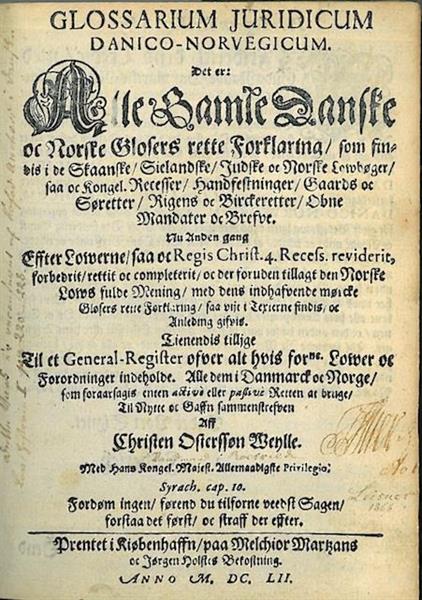 GLOSSARIUM JURIDICUM
DANICO-NORVEGICUM.
Det er:
Alle Gamle Danske
oc Norske Glosers rette Forklaring/ som fin-
dis i de Skaanske/ Sielandske/ Judske oc Norske Lowbøger/
saa oc Kongel. Recesser/ Handfestninger/ Gaards oc
Søretter/ Rigens oc Birckeretter/ Obne
Mandater oc Brefve.
Nu Anden gang
Effter Lowerne/ saa oc Regis Christ. 4. Recess. reviderit,
forbedrit/ rettit oc completerit/ oc der foruden tillagt den Norske
Lows fulde Mening/ med dens indhafvende mørcke
Glosers rette Forklaring/ saa vijt i Texterne findis/ oc
Anledning gifvis.
Tienendis tillige
Til et General-Register ofver alt hvis forne. Lower oc
Forordninger indeholde. Alle dem i Danmarck oc Norge/
som foraarsagis enten activè eller passivè Retten at bruge/
Til Nytte oc Gaffn sammenskrefven
Aff
Christen Osterssøn Weylle.
Med Hans Kongel. Majest. Allernaadigste Privilegio.
Syrach. cap. 10.
Fordøm ingen/ førend du tilforne veedst Sagen/
forstaa det først/ oc straff der effter.
Prentet i Kiøbenhaffn/ paa Melchior Martzans
oc Jørgen Holstes Bekostning.
ANNO M. DC. LII.